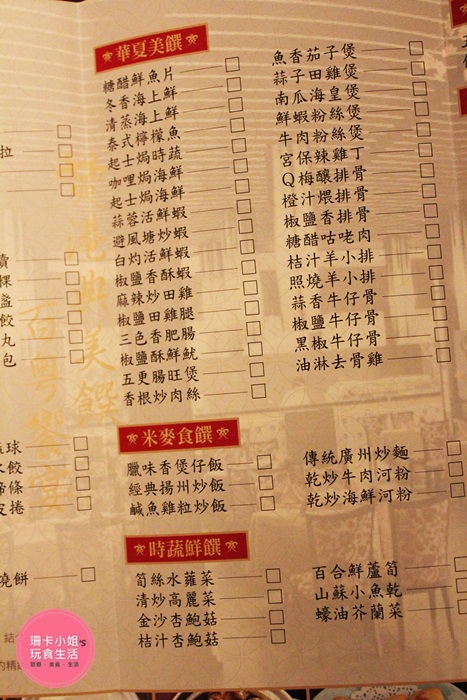 華夏美饌
糖醋鮮魚片
冬香海上鮮
清蒸海上鮮
泰式檸檬魚
起士焗時蔬
咖哩焗海鮮
起士焗海鮮
蒜蓉活鮮蝦
避風塘炒蝦
白灼活鮮蝦
椒鹽香酥蝦
麻辣炒田雞
椒鹽田雞腿
三色香肥腸
椒鹽酥鮮魷
五更腸旺煲
香根炒肉絲
魚香茄子煲
蒜子田雞煲
南瓜海皇煲
鮮蝦粉絲煲
牛肉粉絲煲
宮保辣雞丁
Q梅釀排骨
橙汁煨排骨
椒鹽香排骨
糖醋咕咾肉
桔汁羊小排
照燒羊小排
蒜香牛仔骨
椒鹽牛仔骨
黑椒牛仔骨
油淋去骨雞
米麥食饌
臘味香煲仔飯
經典揚州炒飯
鹹魚雞粒炒飯
傳統廣州炒麵
乾炒牛肉河粉
乾炒海鮮河粉
時蔬鮮饌
筍絲水蕹菜
清炒高麗菜
金沙杏鮑菇
桔汁杏鮑菇
百合鮮蘆筍
山蘇小魚乾
蠔油芥蘭菜
拉
粿
盞
餃
丸
包
球
水餃
條
皮捲
燒餅
結
的精
珊卡小姐's
玩食生活
旅遊·美食·生活